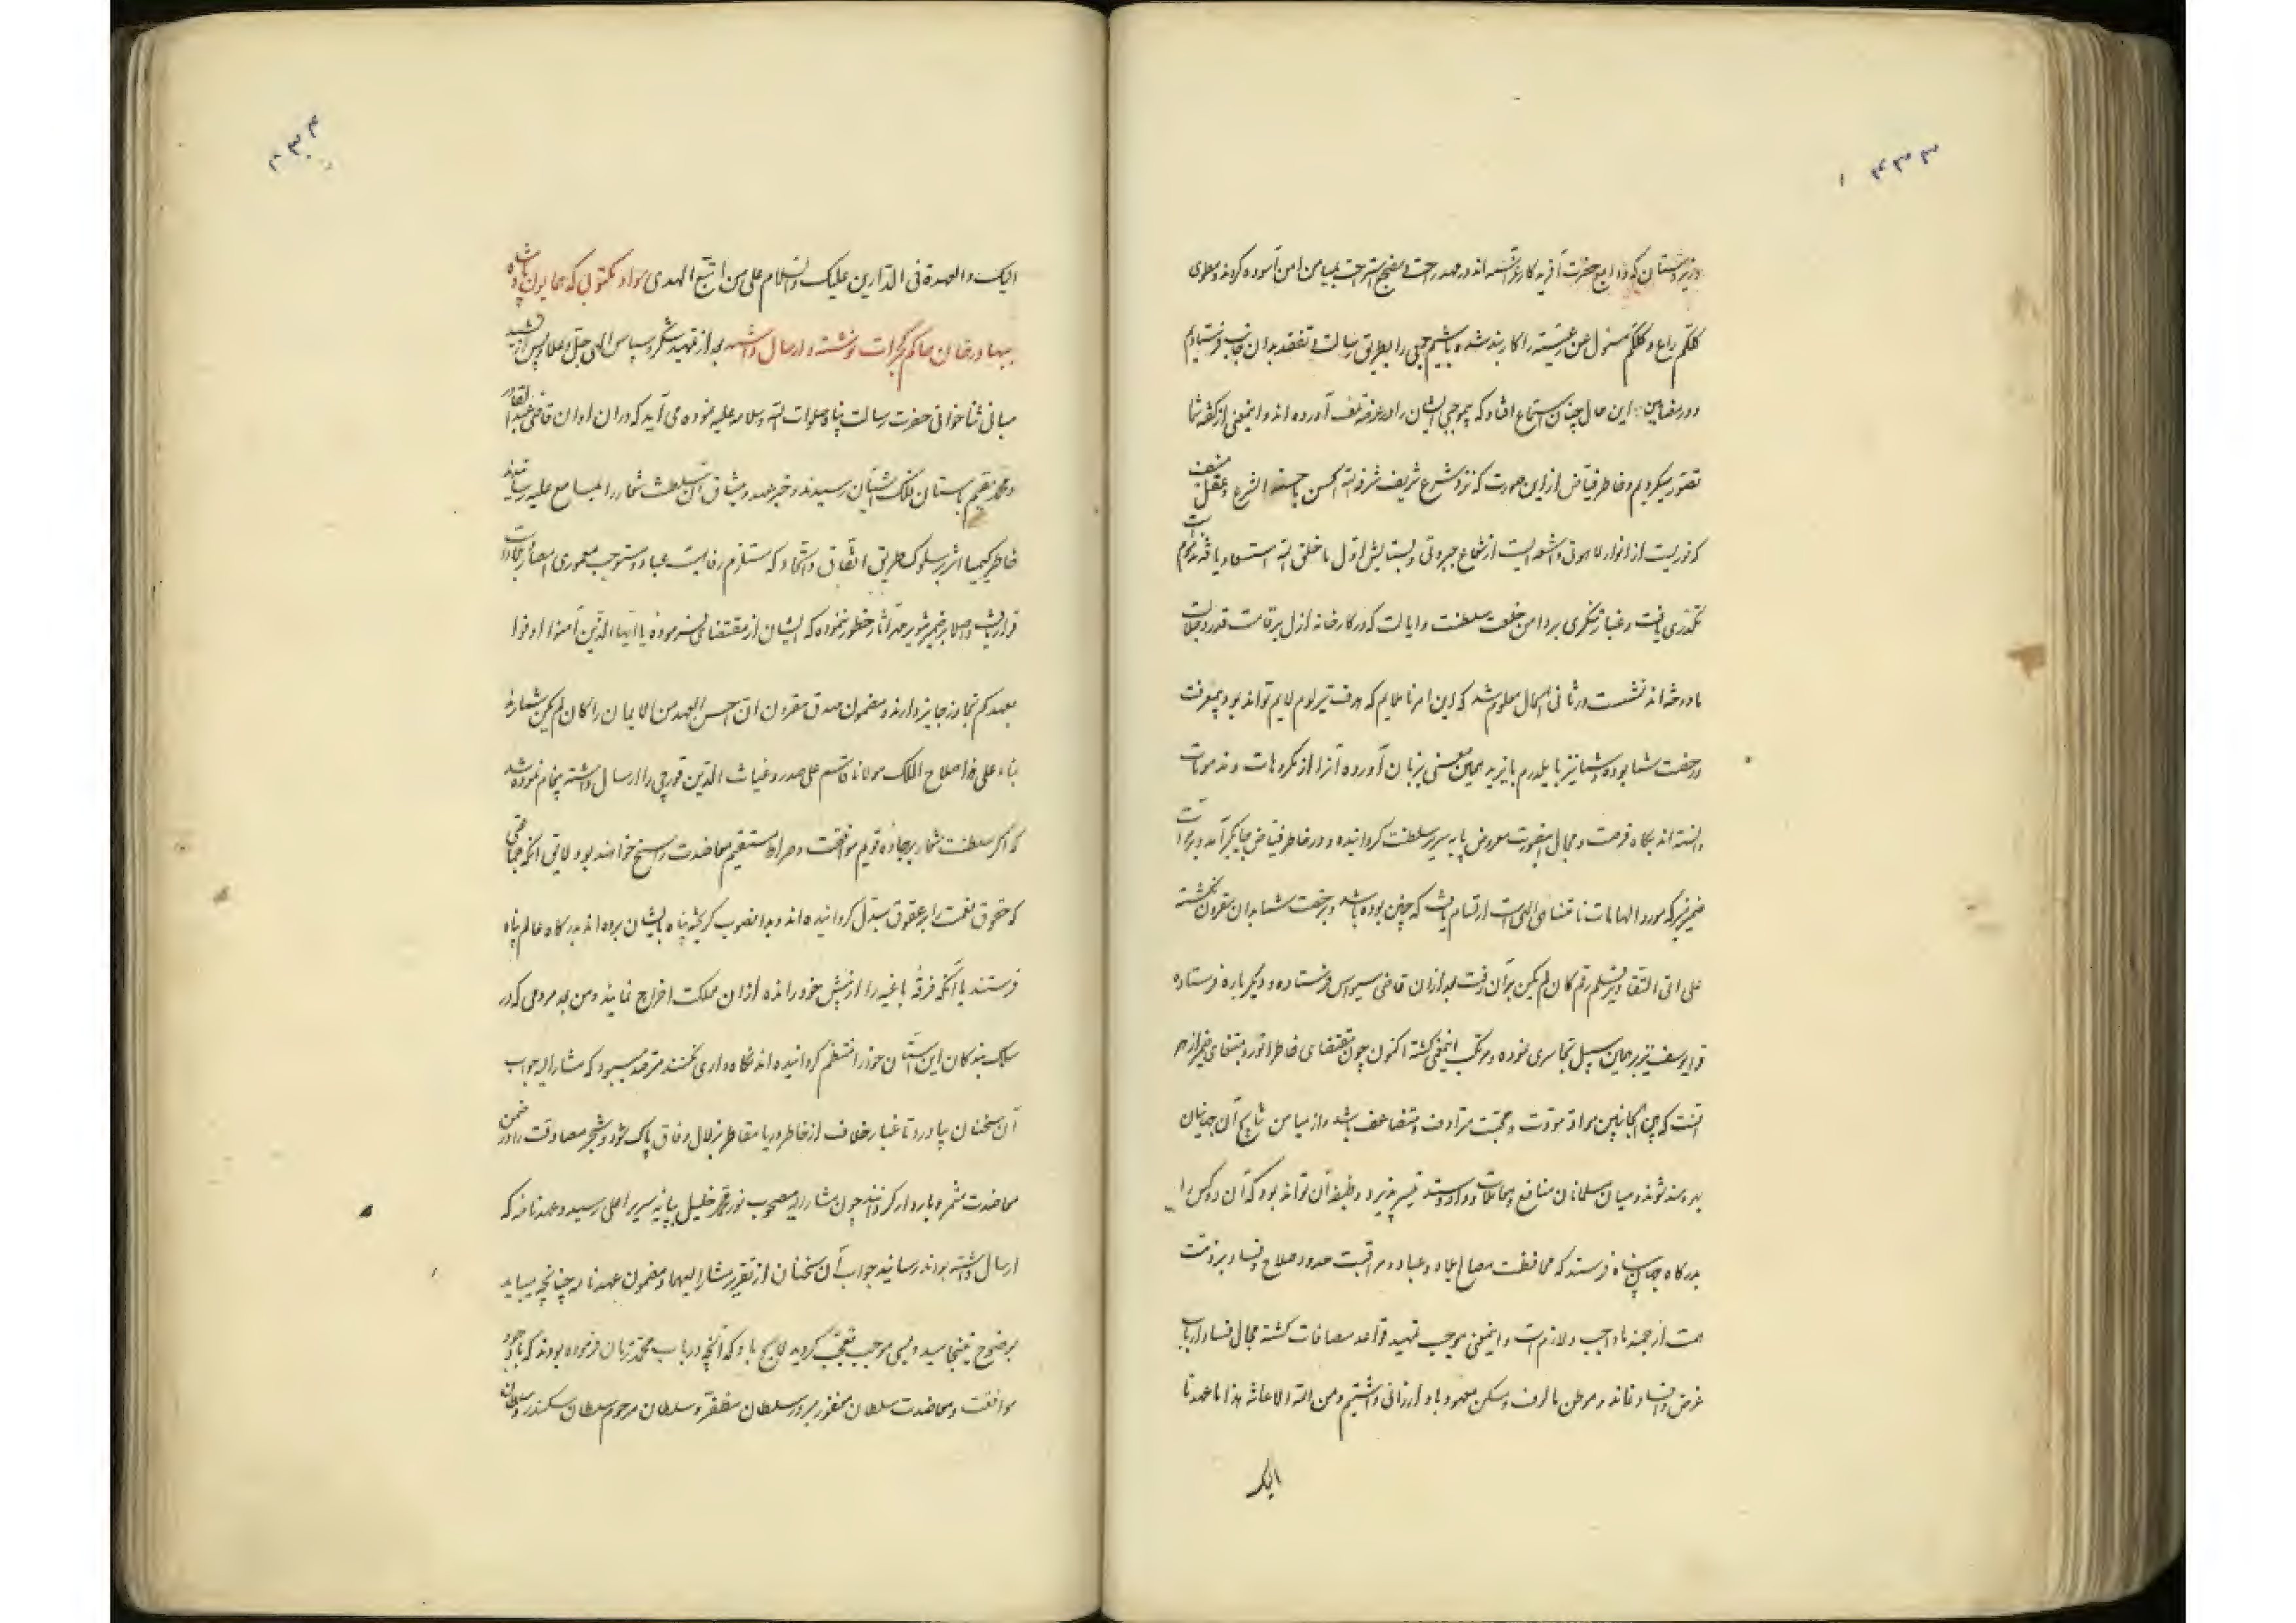 وزیردستان که ودایع حضرت آفریدکار عز شانه اند در مهد راحت و مضجع استراحت بمیامن امن آسوده کردند و معلوی
کلکم راع و کلکم مسئول عن رعیته را کاربند شده باشیم جبی را بطریق رسالت و تفقد بدان جانب فرستادیم
و در مضامین این حال چنان استماع افتاد که بموجبی ایشان را در عرضه تلف آورده اند و اینمعنی از کفه شما
تصور میکردیم و خاطر فیاض از این صورت که نزد شرع شریف شرفه الله الحسن ما حسنه الشرع و عقل منیف
که نوریست از انوار لاهوتی و شعله ایست از شعاع جبروتی و بستایش اول ما خلق الله استسعاد یافته
تکدری یافت و غبار تفکری بر دامن خلعت سلطنت و ایالت که در کارخانه ازل بر قامت قدر و جلالت
ما دوخته اند نشست و ثانی الحال معلوم شد که این امر ناملایم که هدف تیر لوم لایم تواند بود بمعرفت
و رخصت شما بوده و شما نیز با یلدرم بایزید همین معنی بزبان آورده آنرا از مکروهات و مذمومات
دانسته اند بکاه فرصت و مجال اینصورت معروض پایه سریر سلطنت کردانیده و در خاطر فیاض جایکیر آمد و بر مرآت
ضمیر منیر که مورد الهامات نامتناهی الهی است ارتسام یافت که چنین بوده باشد و برخصت شما بدان مقرون نکشته
علی ای التقادیر قلم رقم کان لم یکن بر آن رفت بعد از آن قاضی سیواس فرستاده و دیکر باره فرستاده
قرا یوسف نیز بر همین سبیل تجاسری نموده و مرتکب اینمعنی کشته اکنون چون مقتضای خاطر انور و مبتغای ضمیر ازهر
آنست که بین الجانبین مواد مودت و محبت مترادف و متضاعف باشد و از میامن نتایج آن جهانیان
بهره مند شوند و میان مسلمانان منافع و معاملات و داد و ستد تیسر پذیرد وظیفه آن تواند بود که آن دو کس را
بدرکاه جهان پناه فرستند که محافظت مصالح بلاد و عباد و مراقبت حدود صلاح و فساد بر ذمت
همت ارجمند ما واجب و لازم است و اینمعنی موجب تمهید قواعد مصافات کشته مجال فساد ارباب
غرض و فساد نماند و موطن مالوف و مسکن معهود باو ارزانی داشتیم و من الله الاعانة هذا ما عهدنا
الیک
الیک والعهدة فی الدارین علیک والسلام علی من اتبع الهدی سواد مکتوبی که همایون پادشاه
ببهادرخان حاکم کجرات نوشته و ارسال داشته بعد از تمهید شکر و سپاس الهی جل و علا و پس از تشیید
مبانی ثناخوانی حضرت رسالت پناه صلوات الله و سلامه علیه نموده می آید که در آن اوان قاضی عبدالقادر
و محمد مقیم باستان ملک آشیان رسیدند و خبر عهد و میثاق آن سلطنت شعار را بمسامع علیه رسانیدند
خاطر کیمیا اثر بر سلوک طریق اتفاق و اتحاد که مستلزم رفاهیت عباد و مستوجب معموری امصار و بلاد است
قرار یافت و اصلا بر ضمیر منیر مهرآثار خطور ننموده که ایشان از مقتضای فرموده یا ایها الذین آمنوا اوفوا
بعهدکم تجاوز جایز دارند و مضمون صدق مقرون ان احسن العهد من الایمان را کان لم یکن شمارند
بناء علی هذا صلاح الملک مولانا قاسم علی صدر و غیاث الدین قورچی را ارسال داشته پیغام نموده شد
که اکر سلطنت شعار بر جاده قویم موافقت و صراط مستقیم معاضدت راسخ خواهند بود لایق آنکه جماعتی
که حقوق نعمت را بعقوق مبدل کردانیده اند و بدانصوب کریخته پناه بایشان برده اند بدرکاه عالم پناه
فرستند یا آنکه فرقه باغیه را از پیش خود رانده از آن مملکت اخراج نمایند و من بعد مردمی که در
سلک بندکان این آستان خود را منتظم کردانیده اند نکاه داری نکنند مترصد میبود که مشار الیه جواب
آن سخنان بیاورد تا غبار خلاف از خاطر دریا مقاطر بزلال وفاق پاک شود و شجر مصادقت را در ضمن
معاضدت مثمر و باردار کردانند چون مشار الیه مصحوب نورمحمد خلیل بپایه سریر اعلی رسید و عهدنامه که
ارسال داشته بودند رسانید جواب آن سخنان از تقریر مشار الیهما و مضمون عهدنامه چنانچه میباید
بوضوح نینجامید و بسی موجب تعجب کردید لایح باد که آنچه در باب محمد زمان فرموده بودند که باوجود
موافقت و معاضدت سلطان مغفور مبرور سلطان مظفر و سلطان مرحوم سلطان سکندر و سلطان